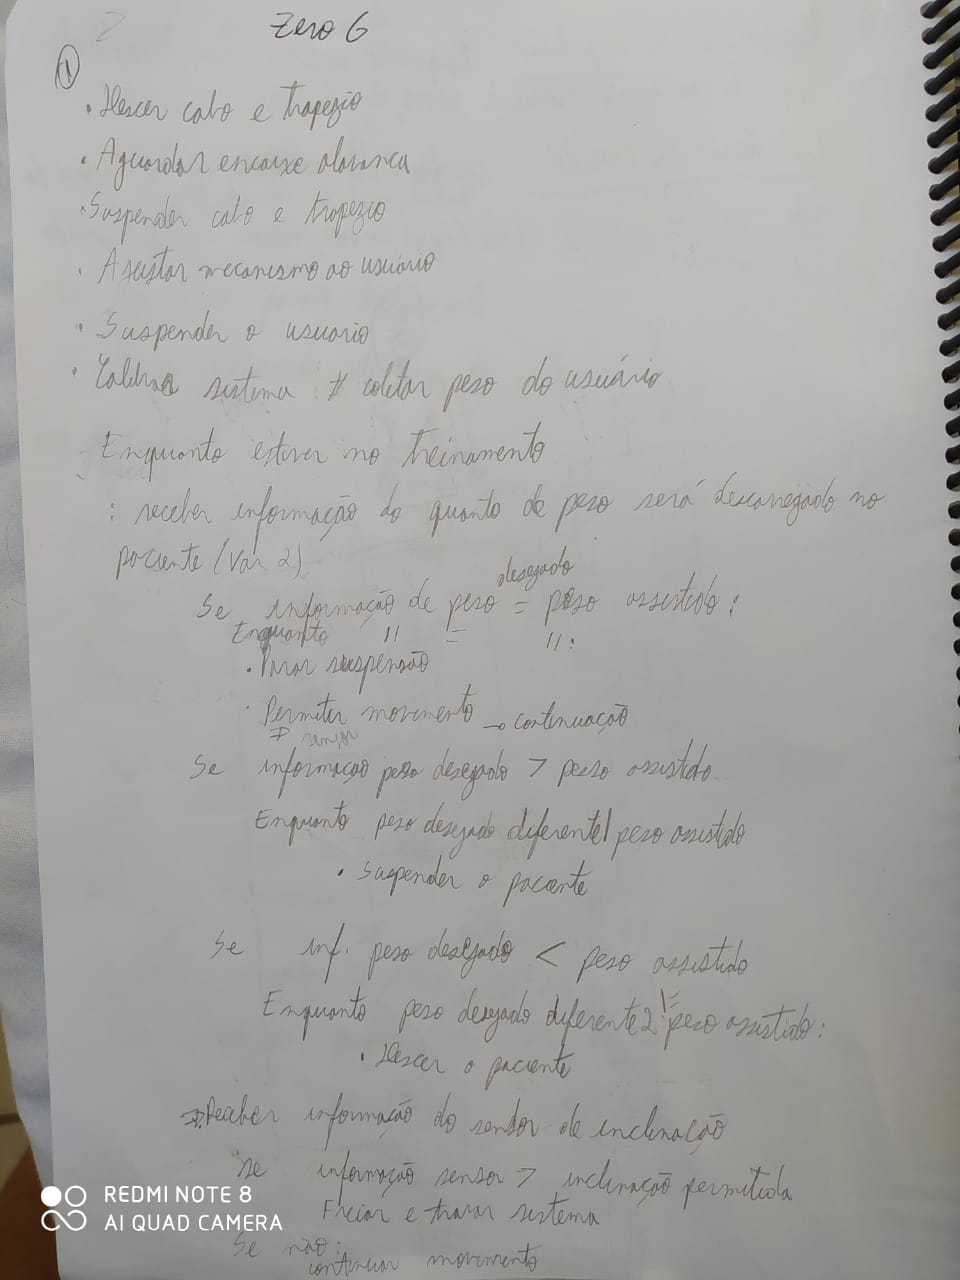 Zero G
1
• Descer cabo e trapezio
• Aguardar encaixe alavanca
• Suspender cabo e trapezio
• Ajustar mecanismo ao usuário
• Suspender o usuario
• sistema # coletar peso do usuário
Enquanto estiver no treinamento
: receber informação do quanto de peso será descarregado no
paciente (Var 2)
desejado
Se informação de peso = peso assistido :
Enquanto " = " :
• Parar suspensão
• Permitir movimento → continuação
# sensor
Se informação peso desejado > peso assistido
Enquanto peso desejado diferente1 peso assistido
• Suspender o paciente
Se inf. peso desejado < peso assistido
!=
Enquanto peso desejado diferente2 peso assistido :
• Descer o paciente
Receber informação do sensor de inclinação
se informação sensor > inclinação permitida
Freiar e travar sistema
Se não :
continuar movimento
REDMI NOTE 8
AI QUAD CAMERA